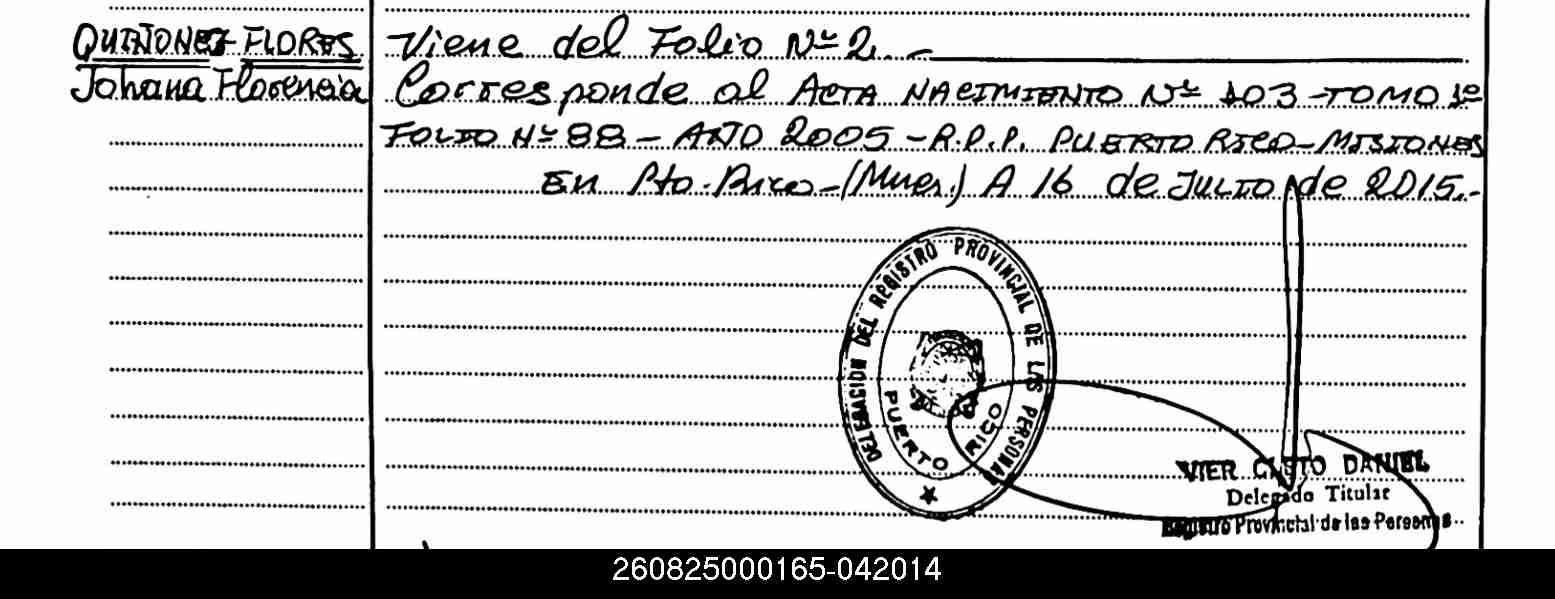 QUIÑONEZ FLORES
Johana Florencia
Viene del Folio Nº 2.-
Corresponde al ACTA NACIMIENTO Nº 103 - TOMO 1º
FOLIO Nº 88 - AÑO 2005 - R.P.P. PUERTO RICO - MISIONES
En Pto. Rico - (Mnes.) A 16 de JULIO de 2015.-
DELEGACION DEL REGISTRO PROVINCIAL DE LAS PERSONAS
PUERTO RICO
VIER CASTO DANIEL
Delegado Titular
Registro Provincial de las Personas
260825000165-042014